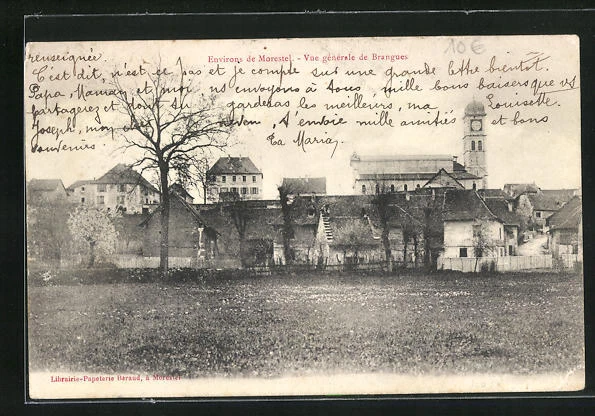 Environs de Morestel. - Vue générale de Brangues
10€
renseignée.
C'est dit, n'est ce pas et je compte sur une grande lettre bientôt.
Papa, Maman et moi ns envoyons à tous mille bons baisers que vs
partagerez et dont tu garderas les meilleurs, ma Louisette.
Joseph, mon t'envoie mille amitiés et bons
souvenirs Ta Maria,
Librairie-Papeterie Béraud, à Morestel